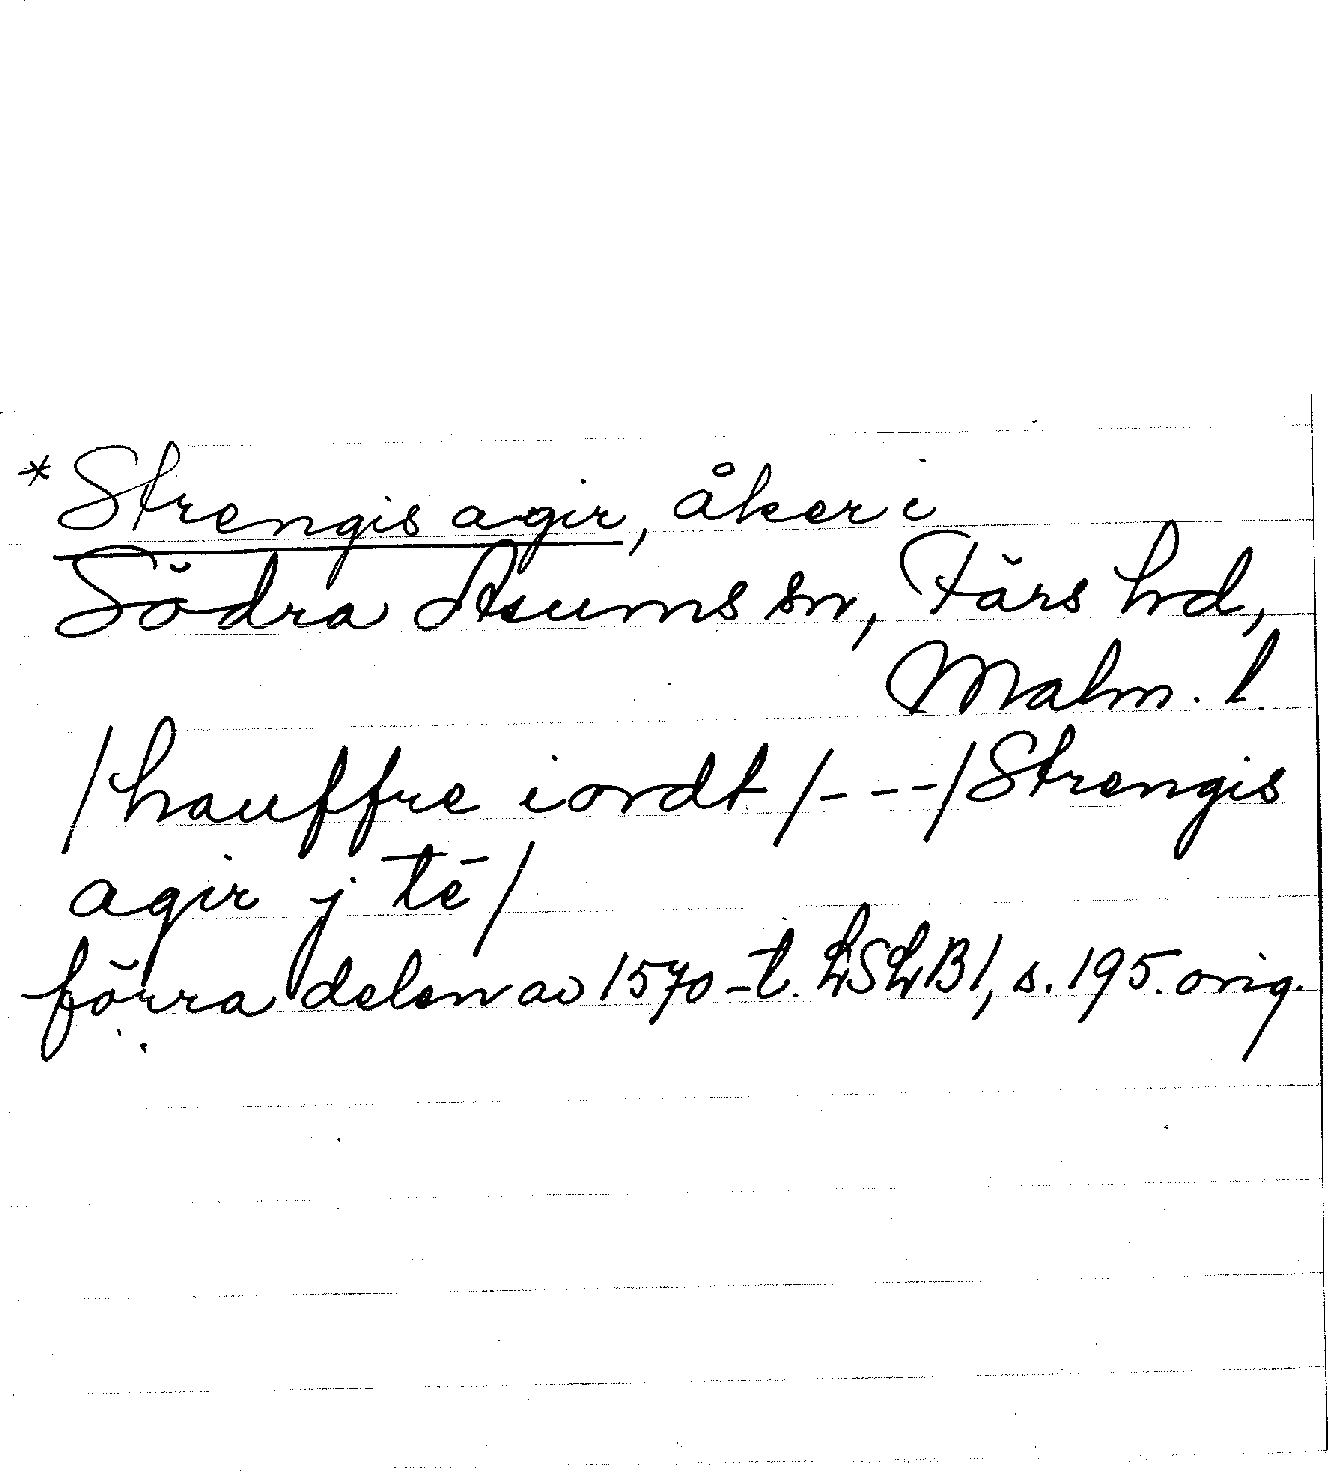 *Strengis agir, åker i
Södra Åsums sn, Färs hd,
Malm. l.
/hauffre iordt /---/ Strengis
agir j tē/
förra delen av 1570-t. LSLB1, s. 195. orig.